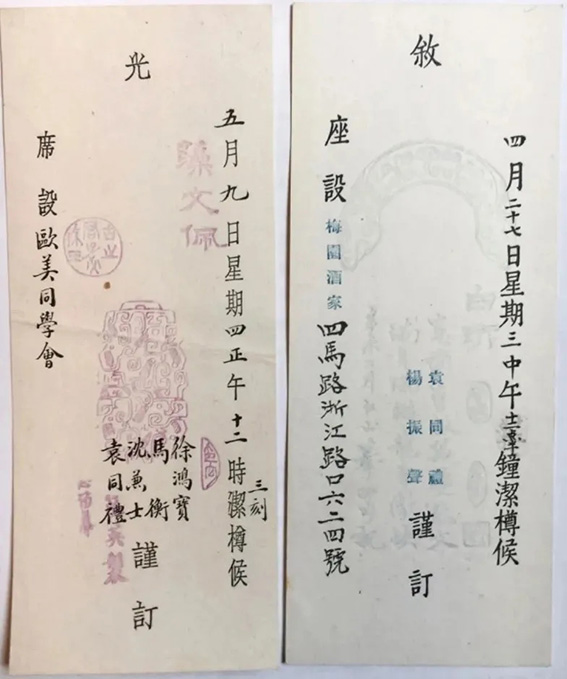 四月二十七日星期三中午十二鐘潔樽候
敘
袁同禮
楊振聲
謹訂
座設梅園酒家四馬路浙江路口六二四號
五月九日星期四正午十二時三刻潔樽候
光
徐鴻寶
馬衡
沈兼士
袁同禮
謹訂
席設歐美同學會
文佩